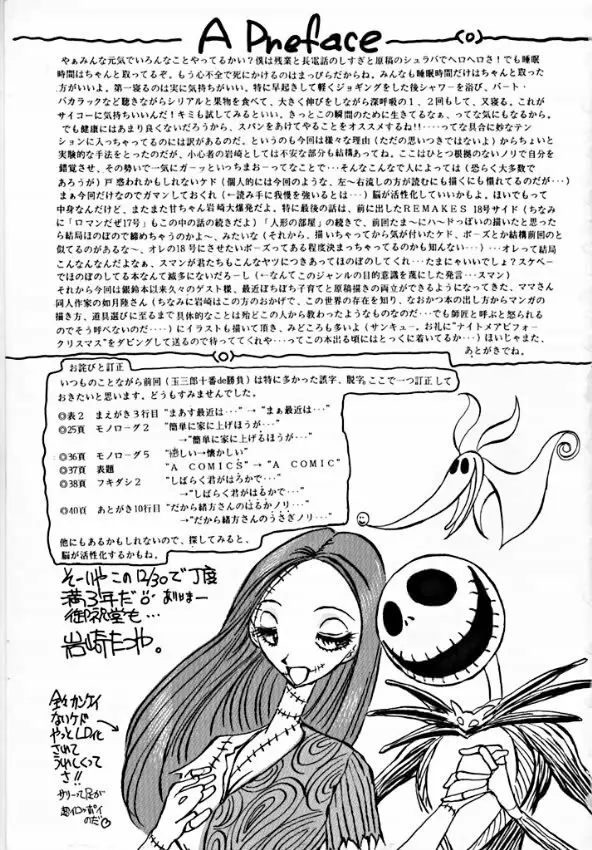 A Preface
やぁみんな元気でいろんなことやってるかい？僕は残業と長電話のしすぎと原稿のシュラバでヘロヘロさ！でも睡眠
時間はちゃんと取ってるぞ。もう心不全で死にかけるのはまっぴらだからね。みんなも睡眠時間だけはちゃんと取った
方がいいよ。第一寝るのは実に気持ちがいい。特に早起きして軽くジョギングをした後シャワーを浴び、バート・
バカラックなど聴きながらシリアルと果物を食べて、大きく伸びをしながら深呼吸の1、2回もして、又寝る。これが
サイコーに気持ちいいんだ！キミも試してみるといい。きっとこの瞬間のために生きてるなぁ、ってな気にもなるから。
でも健康にはあまり良くないだろうから、スパンをあけてやることをオススメするね!!‥‥って な具合に妙なテン
ションに入っちゃってるのには訳があるのだ。というのも今回は様々な理由（ただの思いつきではないよ）からちょいと
実験的な手法をとったのだが、小心者の岩崎としては不安な部分も結構あってね。ここはひとつ根拠のないノリで自分を
錯覚させ、その勢いで一気にガーッといっちまおーってなことで‥‥そんなこんなで人によっては（恐らく大多数で
あろうが）戸惑われかもしれないケド（個人的には今回のような、左～右流しの方が読むにも描くにも慣れてるのだが…）
まぁ今回だけなのでガマンしておくれ（←読み手に我慢を強いるとは…）脳が活性化していいかもよ。ほいでもって
中身なんだけど、またまた甘ちゃん岩崎大爆発だよ。特に最後の話は、前に出したREMAKES 18号サイド（ちなみ
に「ロマンだぜ17号」もこの中の話の続きだよ）「人形の部屋」の続きで、前回たま～にハードっぽいの描いたと思った
ら結局ほのぼので締めちゃうのかよ～、みたいな（くそれから、描いちゃってから気が付いたケド、ポーズとか結構前回のと
似てるのがあるな～、オレの18号にさせたいポーズってある程度決まっちゃってるのかも知んない…）…オレって結局
こんなんなんだよなぁ、スマンが君たちもこんなヤツにつきあってほのぼのしてくれ…たまにゃいいでしょ？スケベー
でほのぼのしてる本なんて滅多にないだろーし（←なんてこのジャンルの目的意識を蔑にした発言…スマン）
それから今回は銀鈴本以来久々のゲスト様、最近ぼちぼち子育てと原稿描きの両立ができるようになってきた、ママさん
同人作家の如月陸さん（ちなみに岩崎はこの方のおかげで、この世界の存在を知り、なおかつ本の出し方からマンガの
描き方、道具選びに至るまで具体的なことは殆どこの人から教わったようなものなのだ…でも師匠と呼ぶと怒られる
のでそう呼べないのだ‥‥）にイラストも描いて頂き、みどころも多いよ（サンキュー。お礼に“ナイトメアビフォー
クリスマス”をダビングして送るので待っててくれや‥‥ってこの本出る頃にはとっくに着いてるか…）ほいじゃまた、
あとがきでね。
お詫びと訂正
いつものことながら前回（玉三郎十番de勝負）は特に多かった誤字、脱字。ここで一つ訂正して
おきたいと思います。どうもすみませんでした。
◎表2　まえがき3行目　“まあす最近は…”→“まぁ最近は…”
◎25頁　モノローグ2　“簡単に家に上げほうが‥”
→“簡単に家に上げるほうが‥”
◎36頁　モノローグ5　→懐かしい”
◎37頁　表題　“A COMICS”→“A COMIC”
◎38頁　フキダシ2　“しばらく君がはろかで…”
→“しばらく君がはるかで…”
◎40頁　あとがき10行目　“だから緒方さんのはるかノリ…”
→“だから緒方さんのうさぎノリ…”
他にもあるかもしれないので、探してみると、
脳が活性化するかもね。
そーいやこの12/30で丁度
満3年だ
岩崎たつや。
全々カンケイ
ないケド
やっとLD化
されて
うれしくって
さ!!
サリーって足が
のだ♡